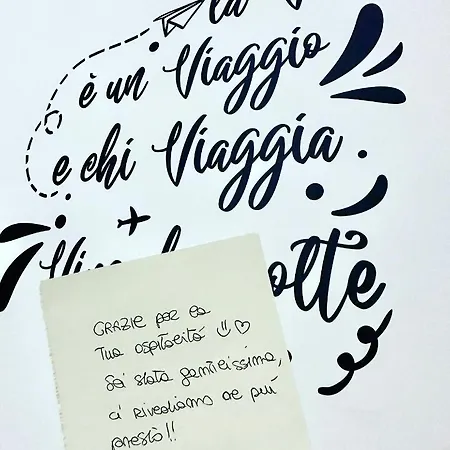 la
è un Viaggio
e chi Viaggia
GRAZIE per la
Tua ospitalità
Sei stata gentilissima,
ci rivediamo al più
presto!!